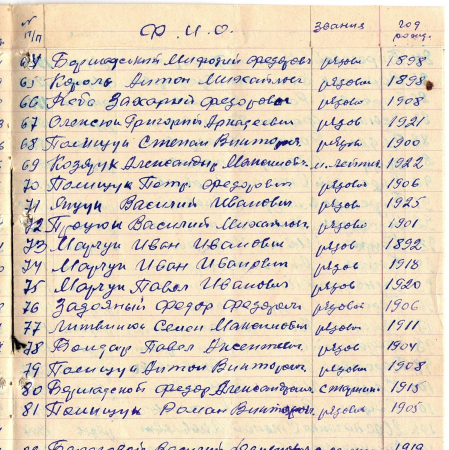 N п/п Ф. И. О. Звания год рожд.
64 Бершадский Мифодий Федорович рядов 1898
65 Король Антон Михайлович рядовой 1898
66 Захарий Федорович рядовой 1908
67 Олексюк Григорий Аркадеевич рядов 1921
68 Полищук Степан Викторович рядов 1900
69 Козярук Александр Максимович м. лейтен. 1922
70 Полищук Петр Федорович рядовой 1906
71 Яцук Василий Иванович рядов 1925
72 Процюк Василий Михайлович рядово 1901
73 Марчук Иван Иванович рядов 1892
74 Марчук Иван Иванович рядов 1918
75 Марчук Павел Иванович рядов 1920
76 Федор Федорович рядовой 1906
77 Литвинюк Семен Максимович рядовой 1911
78 Бондар Павел Аксентевич рядов 1904
79 Полищук Антон Викторович рядовой 1908
80 Бершадский Федор Александрович старшин 1915
81 Полищук Роман Викторович рядовой 1905
Василий 1919